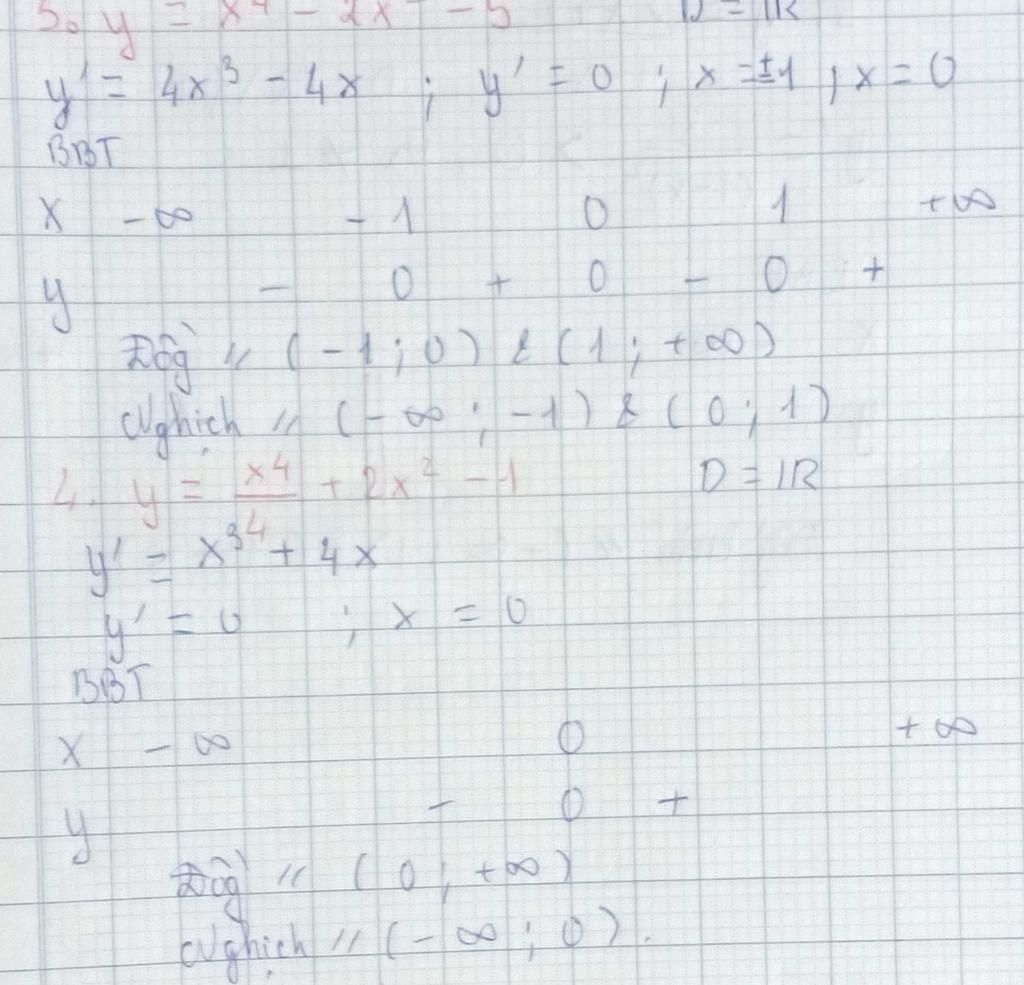 3. y = x⁴ - 2x² - 5 D = ℝ
y' = 4x³ - 4x ; y' = 0 ; x = ±1 ; x = 0
BBT
x -∞ -1 0 1 +∞
y - 0 + 0 - 0 +
Đồg // (-1 ; 0) & (1 ; +∞)
Nghịch // (-∞ ; -1) & (0 ; 1)
4. y = x⁴/4 + 2x² - 1 D = ℝ
y' = x³ + 4x
y' = 0 ; x = 0
BBT
x -∞ 0 +∞
y - 0 +
Đồg // (0 ; +∞)
Nghịch // (-∞ ; 0).